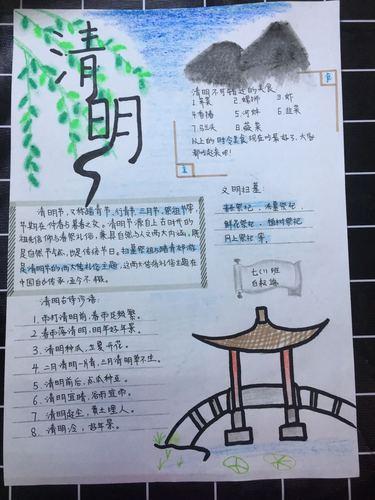 清明
清明不可错过的美食
1.草菜 2.螺蛳 3.虾
4.香椿 5.河蚌 6.韭菜
7.马兰头 8.蕨菜
以上的时令美食现在吃最好了,大家
都吃起来吧!
食
文明扫墓
鲜花祭祀、植树祭祀
网上祭祀等
七(1)班
清明节,又称踏青节、行清节、三月节、祭祖节等,
节期在仲春与暮春之交。清明节源自上古时代的
祖先信仰与春祭礼俗,兼具自然与人文两大内涵,既
是自然节气点,也是传统节日。扫墓祭祖与踏青郊游
是清明节的两大礼俗主题,这两大传统礼俗主题在
中国自古传承,至今不辍。
清明古诗谚语:
1.雨打清明前,春雨定频繁。
2.春雨落清明,明年好年景。
3.清明种瓜,立夏开花。
4.二月清明一片青,三月清明草不生。
5.清明前后,点瓜种豆。
6.清明宜晴,谷雨宜雨。
7.清明起尘,黄土埋人。
8.清明冷,好年景。